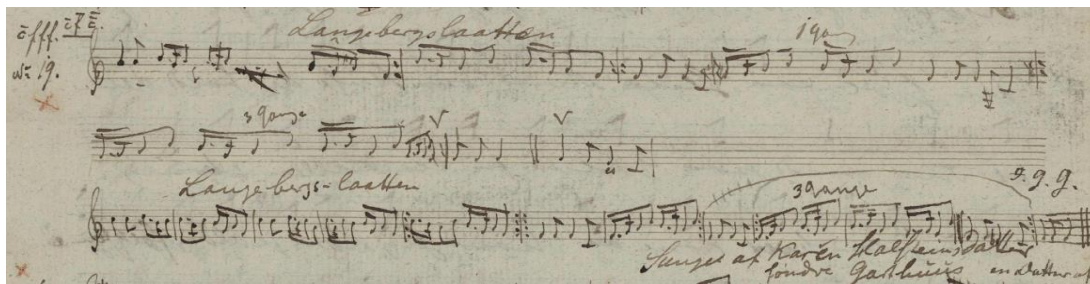 Langebergslaatten
No 19.
3 gange
Langebergs-laatten
g. g. g.
3 gange
Sunget af Karen Halsteinsdatter
søndre Garthuus en datter af